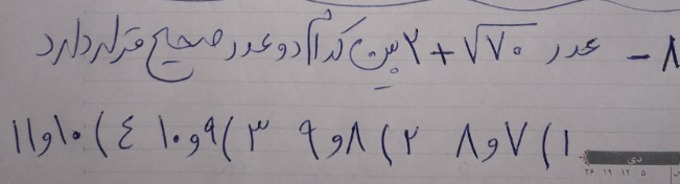 ۸ - عدد ۲ + √۷۰ بین کدام دو عدد صحیح قرار دارد
۱) ۷ و ۸ ۲) ۸ و ۹ ۳) ۹ و ۱۰ ۴) ۱۰ و ۱۱
دی
۵ ۱۲ ۱۹ ۲۶